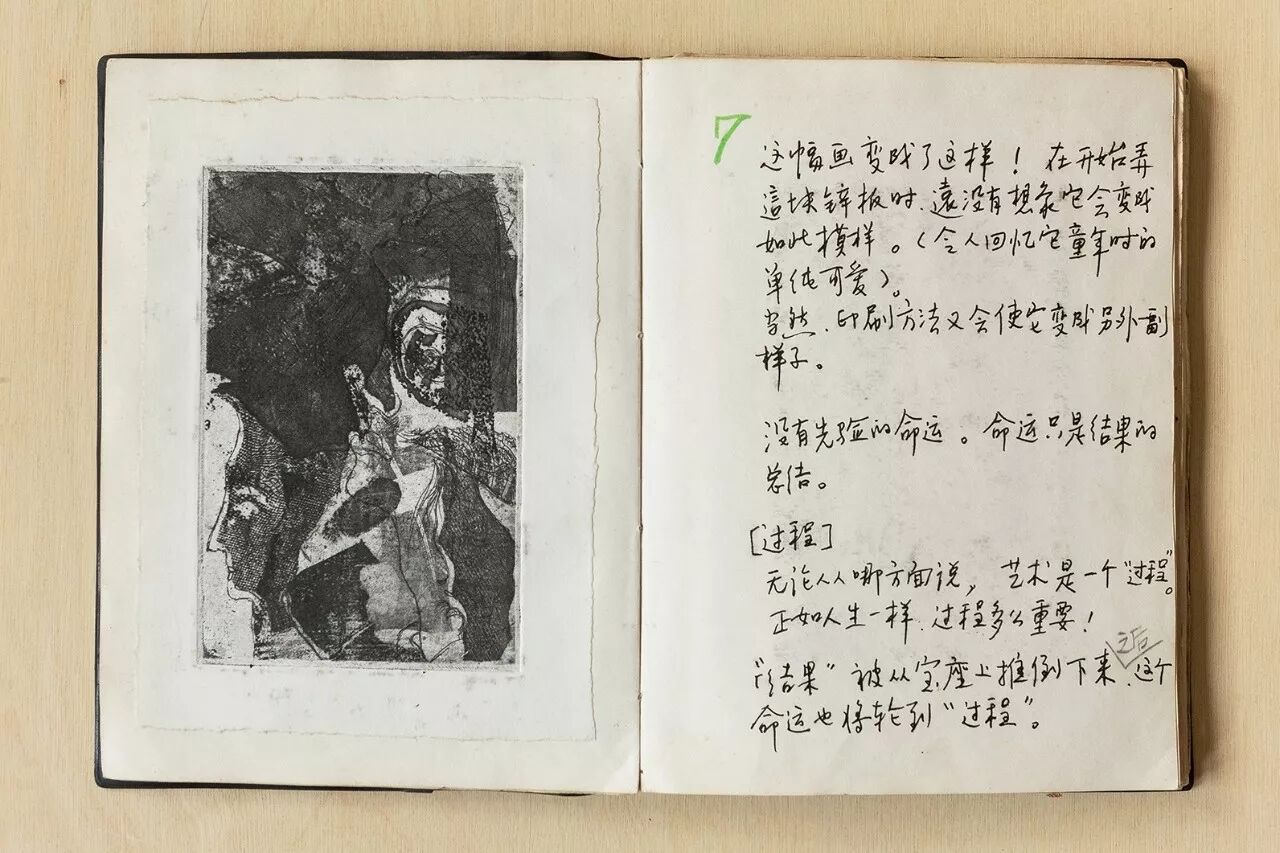 7
这幅画变成了这样！在开始弄
這块锌板时.遠没有想象它会变成
如此模样。（令人回忆它童年时的
单纯可爱）。
当然.印刷方法又会使它变成另外副
样子。
没有先验的命运。命运只是结果的
总结。
[过程]
无论从哪方面说，艺术是一个“过程”。
正如人生一样.过程多么重要！
之后
“结果”被从宝座上推倒下来.这个
命运也将轮到“过程”。